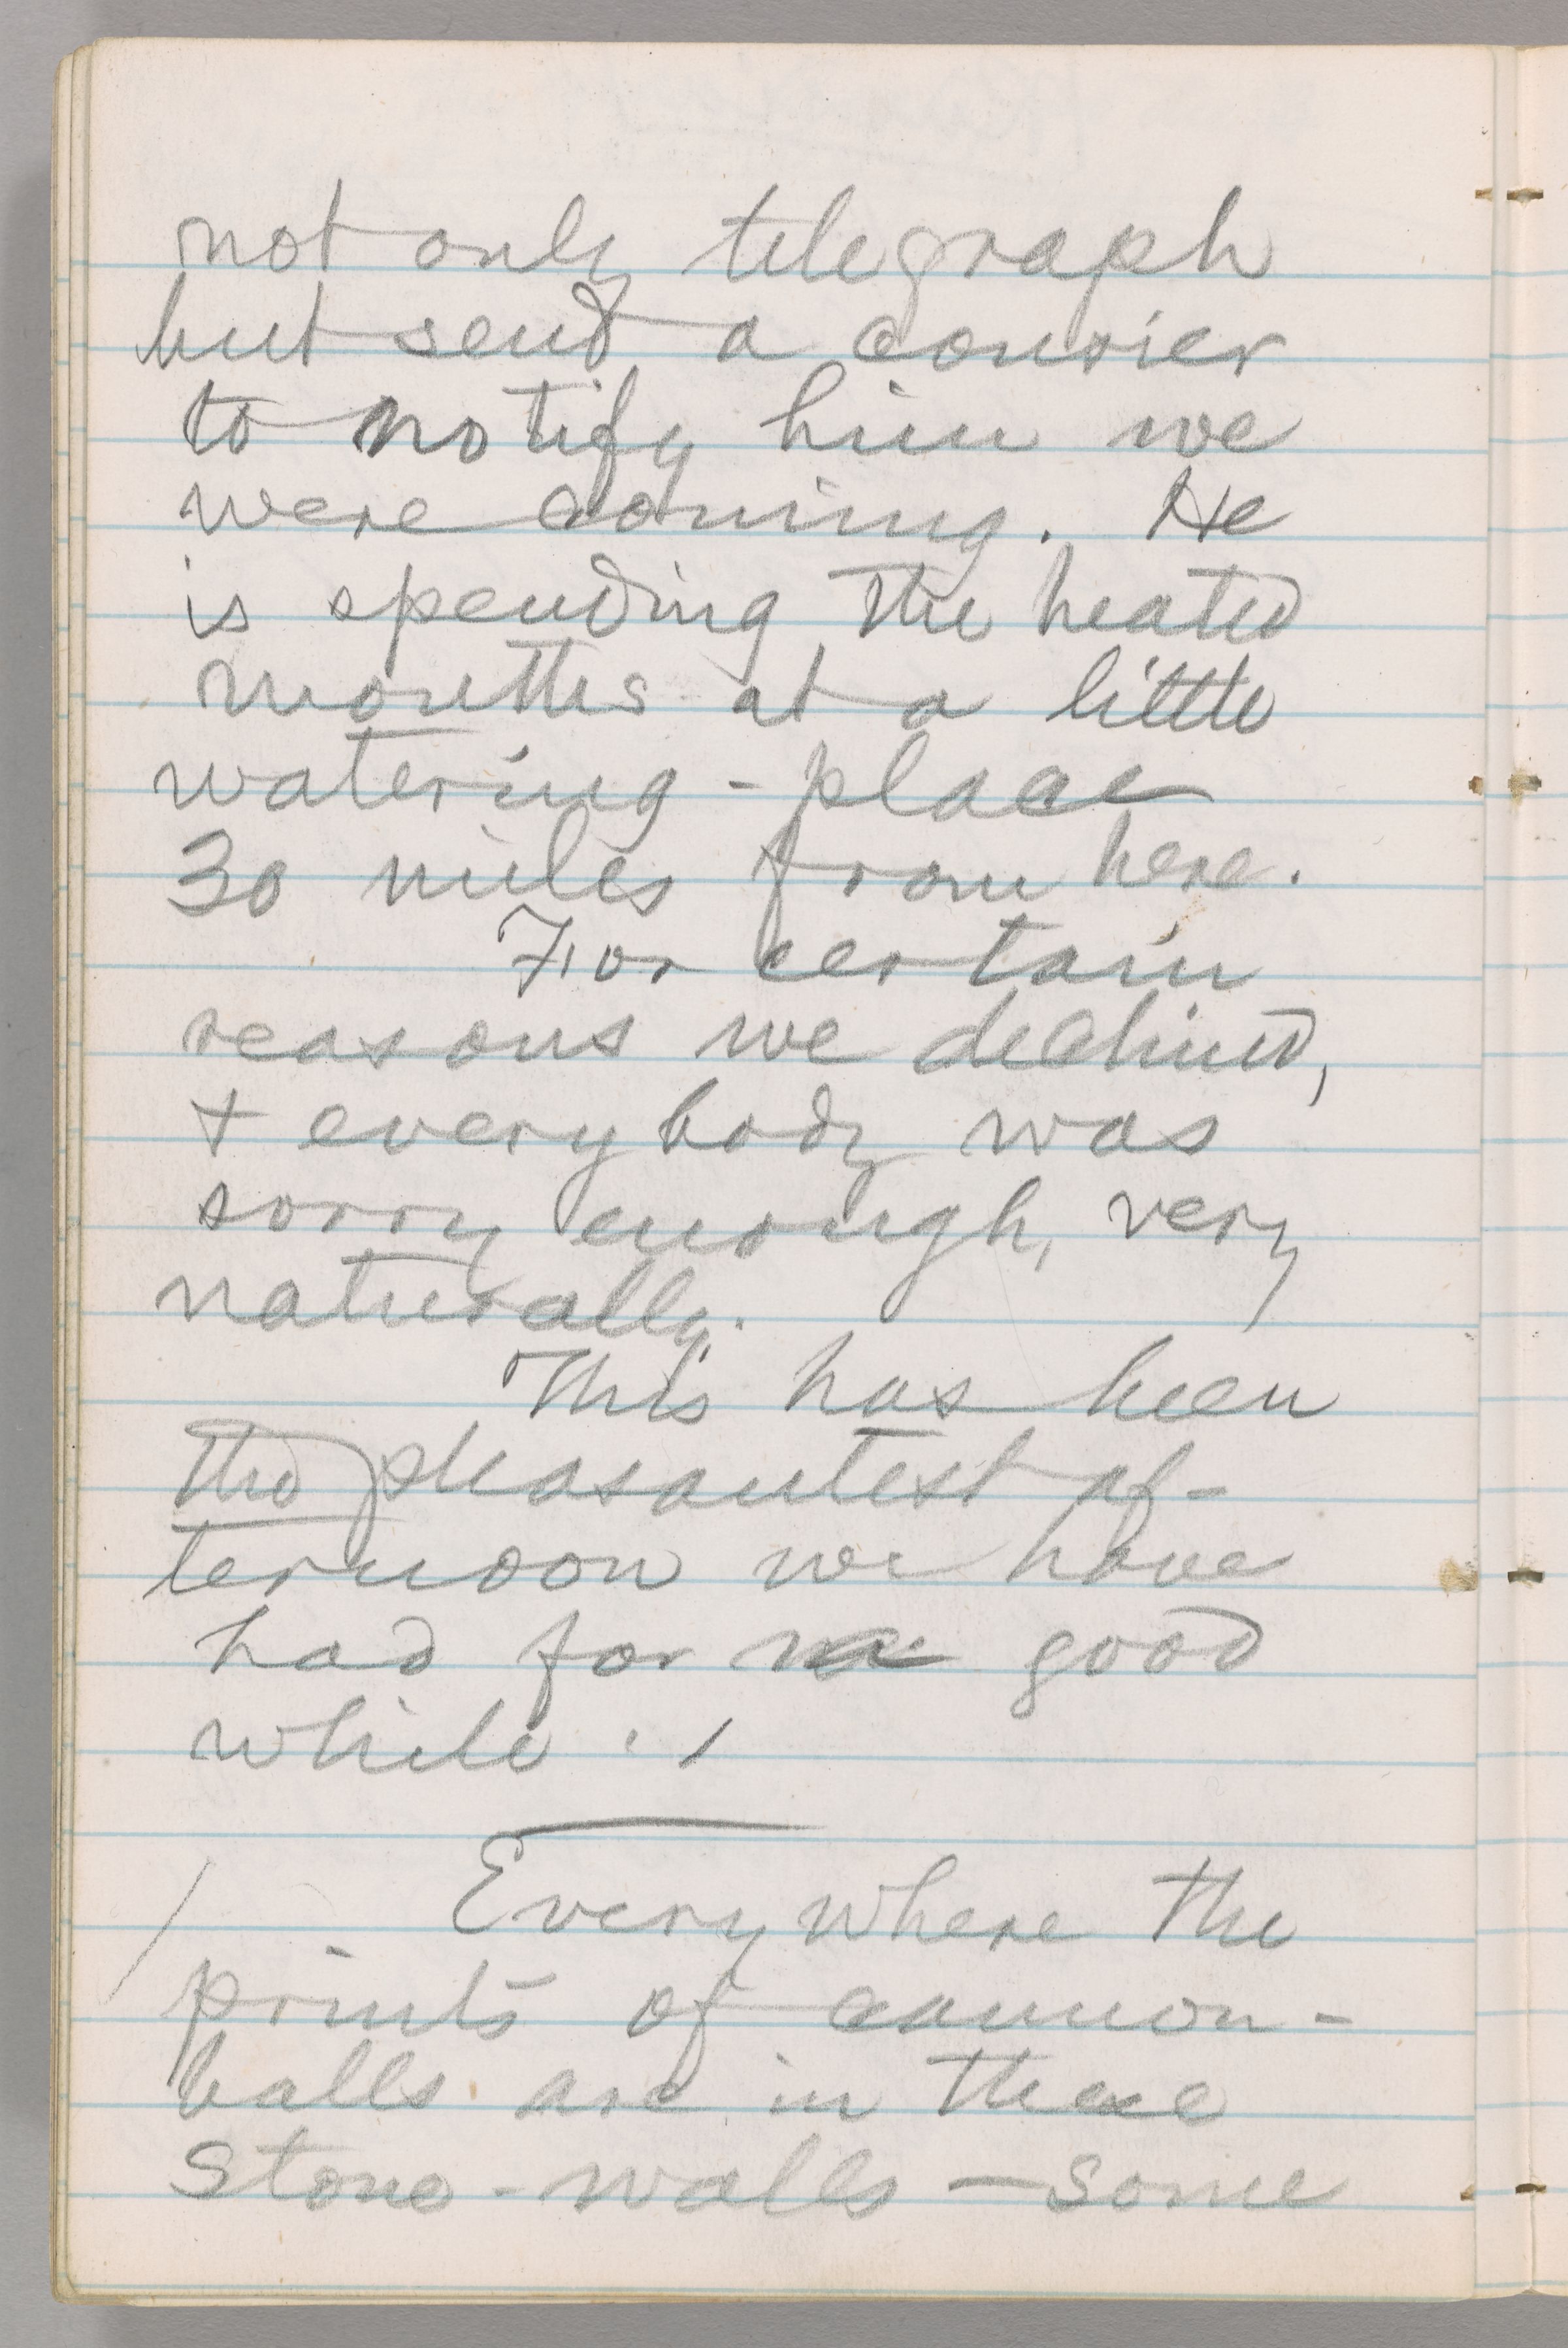 not only telegraph
but send a courier
to notify him we
were coming. He
is spending the heated
months at a little
watering-place
30 miles from here.
For certain
reasons we declined,
+ everybody was
sorry enough, very
naturally.
This has been
the pleasantest af-
ternoon we have
had for a good
while.
Everywhere the
prints of cannon-
balls are in these
stone-walls — some